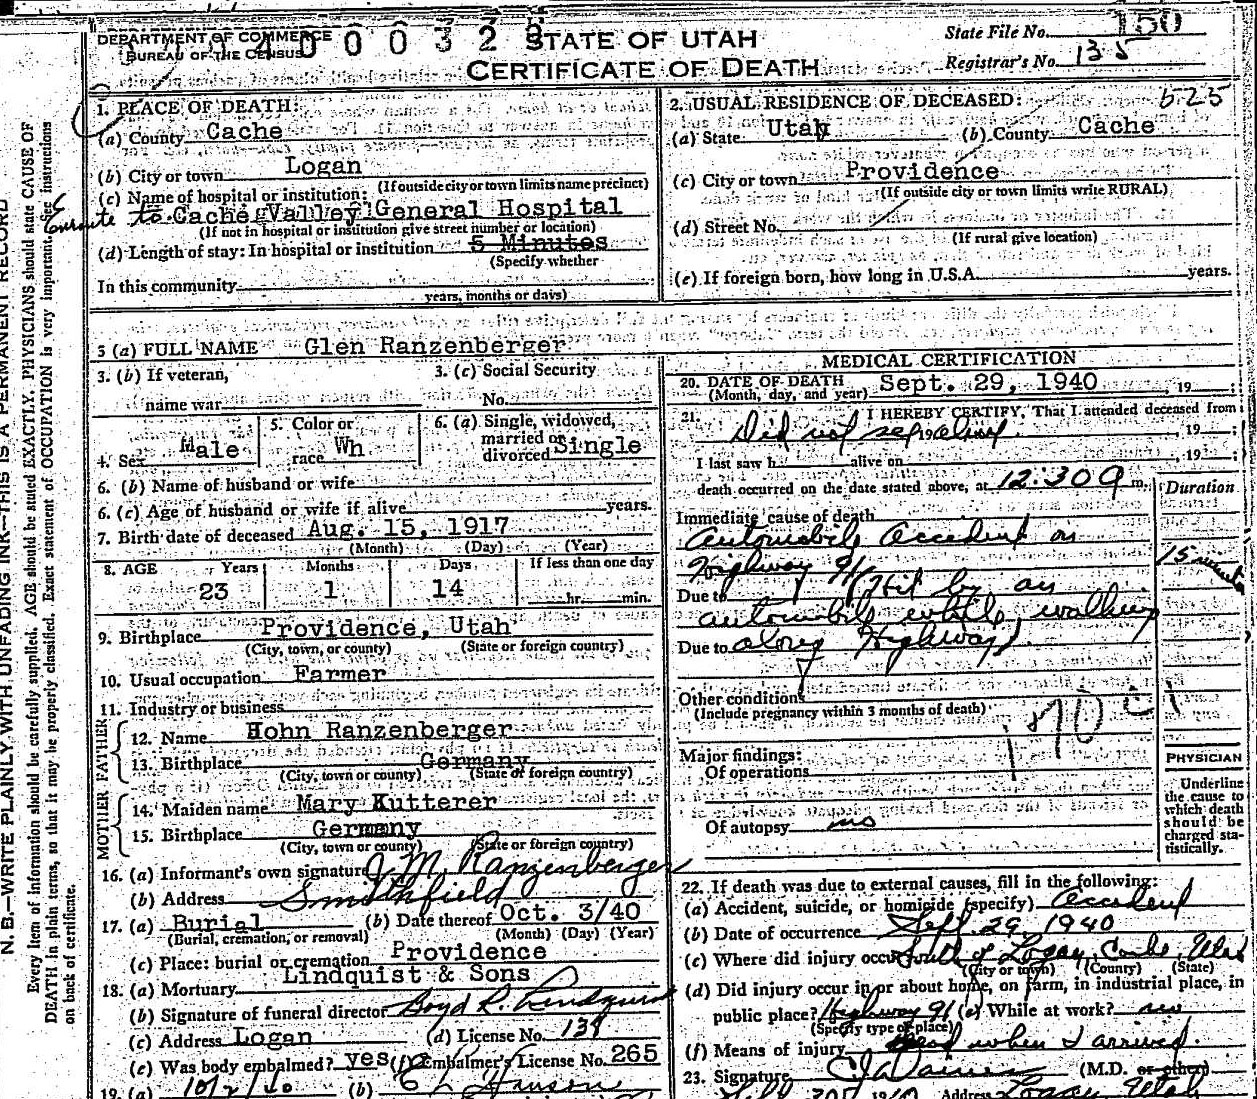 DEPARTMENT OF COMMERCE
BUREAU OF THE CENSUS
4 0 0 0 3 2 8
STATE OF UTAH
CERTIFICATE OF DEATH
State File No. 150
Registrar's No. 135
N. B.—WRITE PLAINLY WITH UNFADING INK—THIS IS A PERMANENT RECORD
Every item of information should be carefully supplied. AGE should be stated EXACTLY. PHYSICIANS should state CAUSE OF
DEATH in plain terms, so that it may be properly classified. Exact statement of OCCUPATION is very important. See instructions
on back of certificate.
1. PLACE OF DEATH:
(a) County Cache
(b) City or town Logan
(If outside city or town limits name precinct)
(c) Name of hospital or institution:
Enroute to Cache Valley General Hospital
(If not in hospital or institution give street number or location)
(d) Length of stay: In hospital or institution 5 Minutes
(Specify whether
In this community
years, months or days)
2. USUAL RESIDENCE OF DECEASED: 525
(a) State Utah (b) County Cache
(c) City or town Providence
(If outside city or town limits write RURAL)
(d) Street No.
(If rural give location)
(e) If foreign born, how long in U.S.A. years.
3 (a) FULL NAME Glen Ranzenberger
3. (b) If veteran,
name war
3. (c) Social Security
No.
4. Sex Male
5. Color or
race Wh
6. (a) Single, widowed,
married or
divorced Single
6. (b) Name of husband or wife
6. (c) Age of husband or wife if alive years.
7. Birth date of deceased Aug. 15, 1917
(Month) (Day) (Year)
8. AGE Years Months Days If less than one day
23 1 14 hr. min.
9. Birthplace Providence, Utah
(City, town, or county) (State or foreign country)
10. Usual occupation Farmer
11. Industry or business
FATHER
12. Name Hohn Ranzenberger
13. Birthplace Germany
(City, town or county) (State or foreign country)
MOTHER
14. Maiden name Mary Kutterer
15. Birthplace Germany
(City, town or county) (State or foreign country)
16. (a) Informant's own signature J. M. Ranzenberger
(b) Address Smithfield
17. (a) Burial (b) Date thereof Oct. 3/40
(Burial, cremation, or removal) (Month) (Day) (Year)
(c) Place: burial or cremation Providence
18. (a) Mortuary Lindquist & Sons
(b) Signature of funeral director Boyd R. Lindquist
(c) Address Logan (d) License No. 139
(e) Was body embalmed? yes (f) Embalmer's License No. 265
19. (a) 10/2/40 (b)
MEDICAL CERTIFICATION
20. DATE OF DEATH Sept. 29, 1940, 19
(Month, day, and year)
21. I HEREBY CERTIFY, That I attended deceased from
Did not , 19
I last saw h alive on , 19
death occurred on the date stated above, at 12:30 a m.
Duration
Immediate cause of death
Automobile accident on
Highway 91 15 minutes
Due to Hit by an
automobile while walking
Due to along Highway.
Other conditions
(Include pregnancy within 3 months of death)
Major findings:
Of operations
Of autopsy no
PHYSICIAN
Underline
the cause to
which death
should be
charged sta-
tistically.
22. If death was due to external causes, fill in the following:
(a) Accident, suicide, or homicide (specify) Accident
(b) Date of occurrence Sept. 29, 1940
(c) Where did injury occur South of Logan, Cache, Utah
(City or town) (County) (State)
(d) Did injury occur in or about home, on farm, in industrial place, in
public place? Highway 91 (e) While at work? no
(Specify type of place)
(f) Means of injury Dead when I arrived.
23. Signature (M.D. or other)
Address Logan, Utah